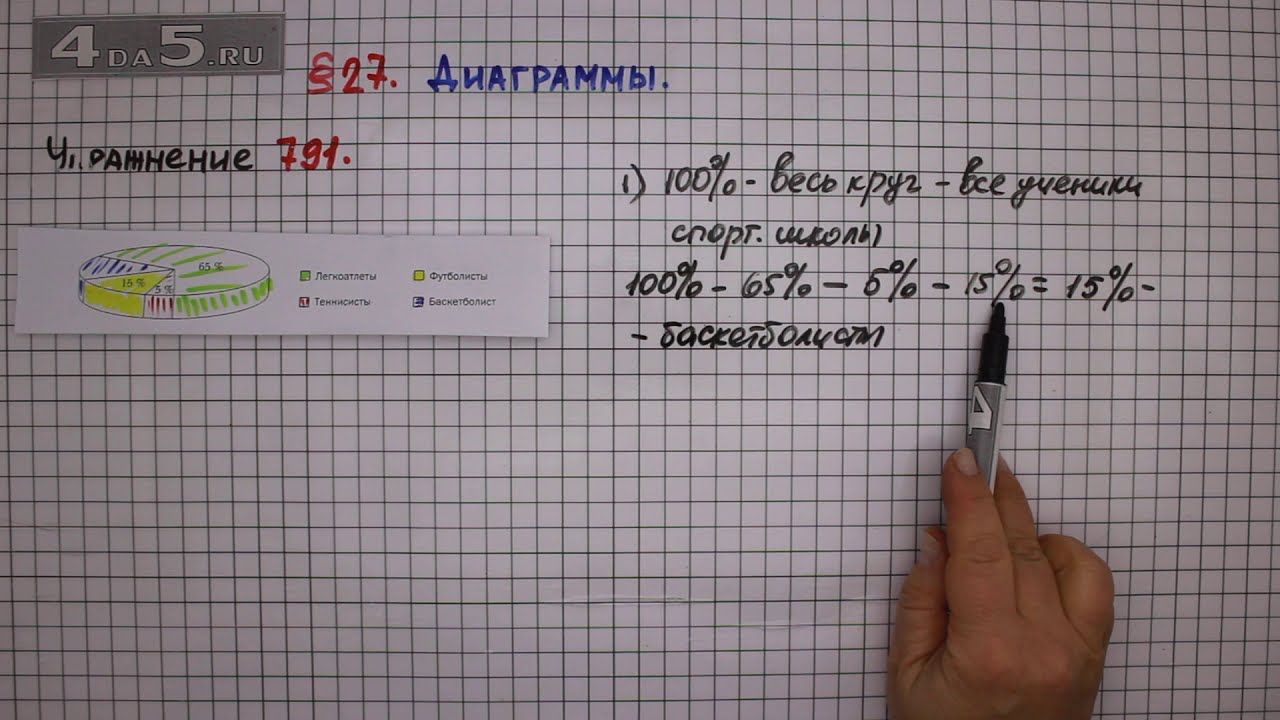 4DA5.RU
§27. Диаграммы.
Упражнение 791.
1) 100% - весь круг - все ученики
спорт. школы
100% - 65% - 5% - 15% = 15% -
- баскетболисты
65 %
15 %
5 %
Легкоатлеты
Футболисты
Т Теннисисты
Б Баскетболист